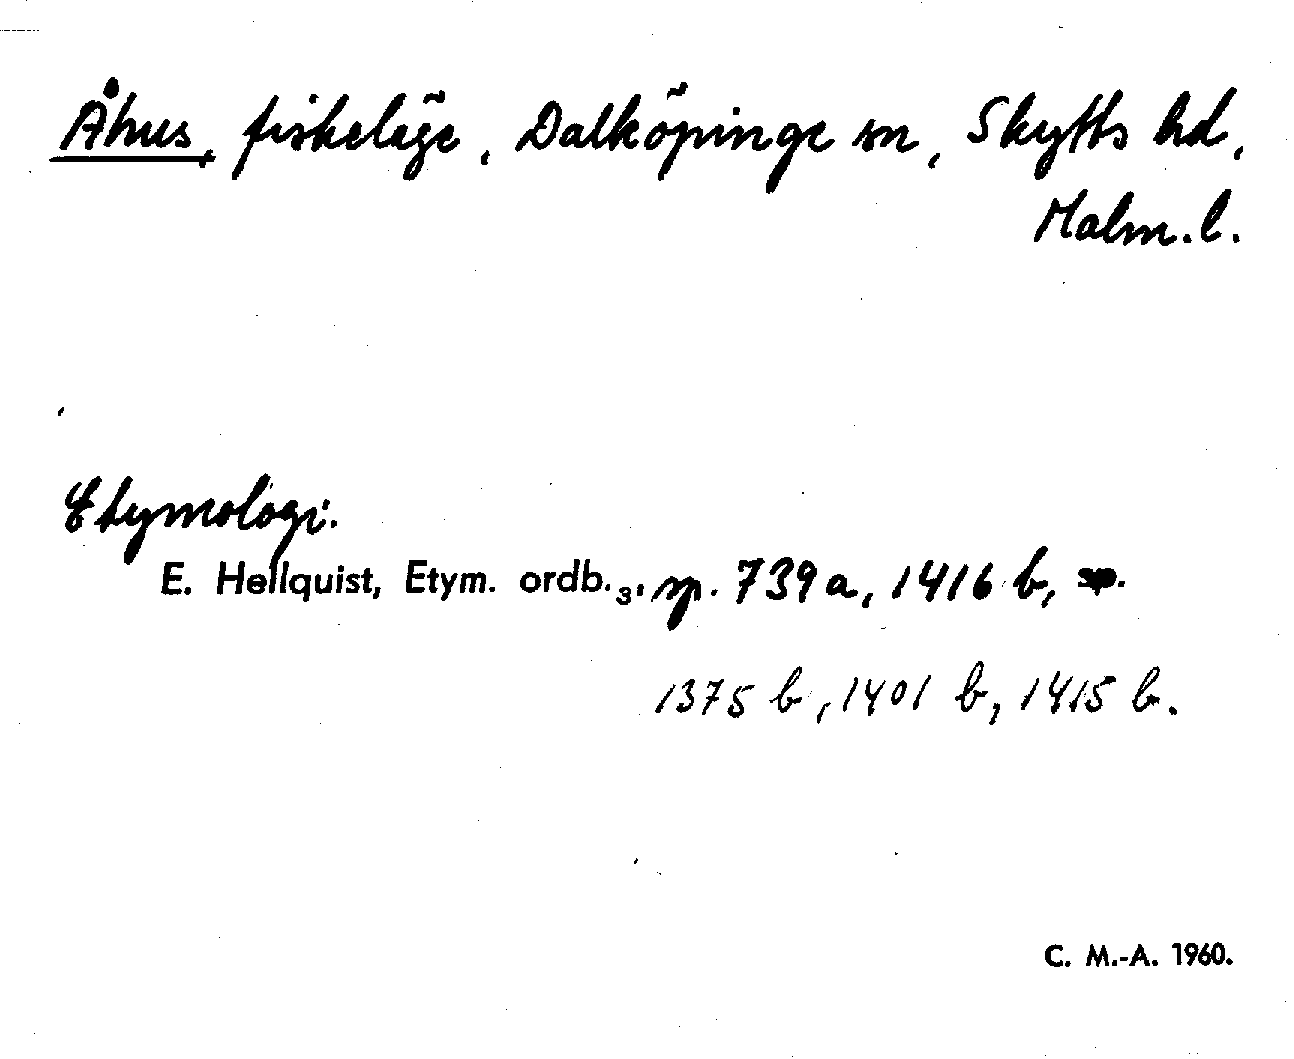 Åhus, fiskeläge, Dalköpinge sn, Skytts hd,
Malm.l.
Etymologi.
E. Hellquist, Etym. ordb.₃, sp. 739 a, 1416 b,
1375 b, 1401 b, 1415 b.
C. M.-A. 1960.